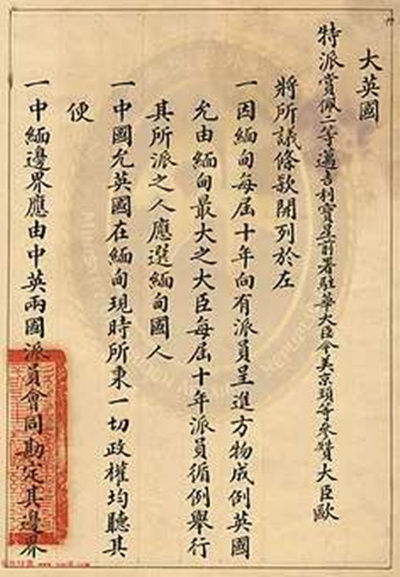 大英國
特派賞佩二等邁吉利寶星前署駐華大臣今英京頭等參贊大臣歐
將所議條款開列於左
一因緬甸每屆十年向有派員呈進方物成例英國
允由緬甸最大之大臣每屆十年派員循例舉行
其所派之人應選緬甸國人
一中國允英國在緬甸現時所秉一切政權均聽其
便
一中緬邊界應由中英兩國派員會同勘定其邊界